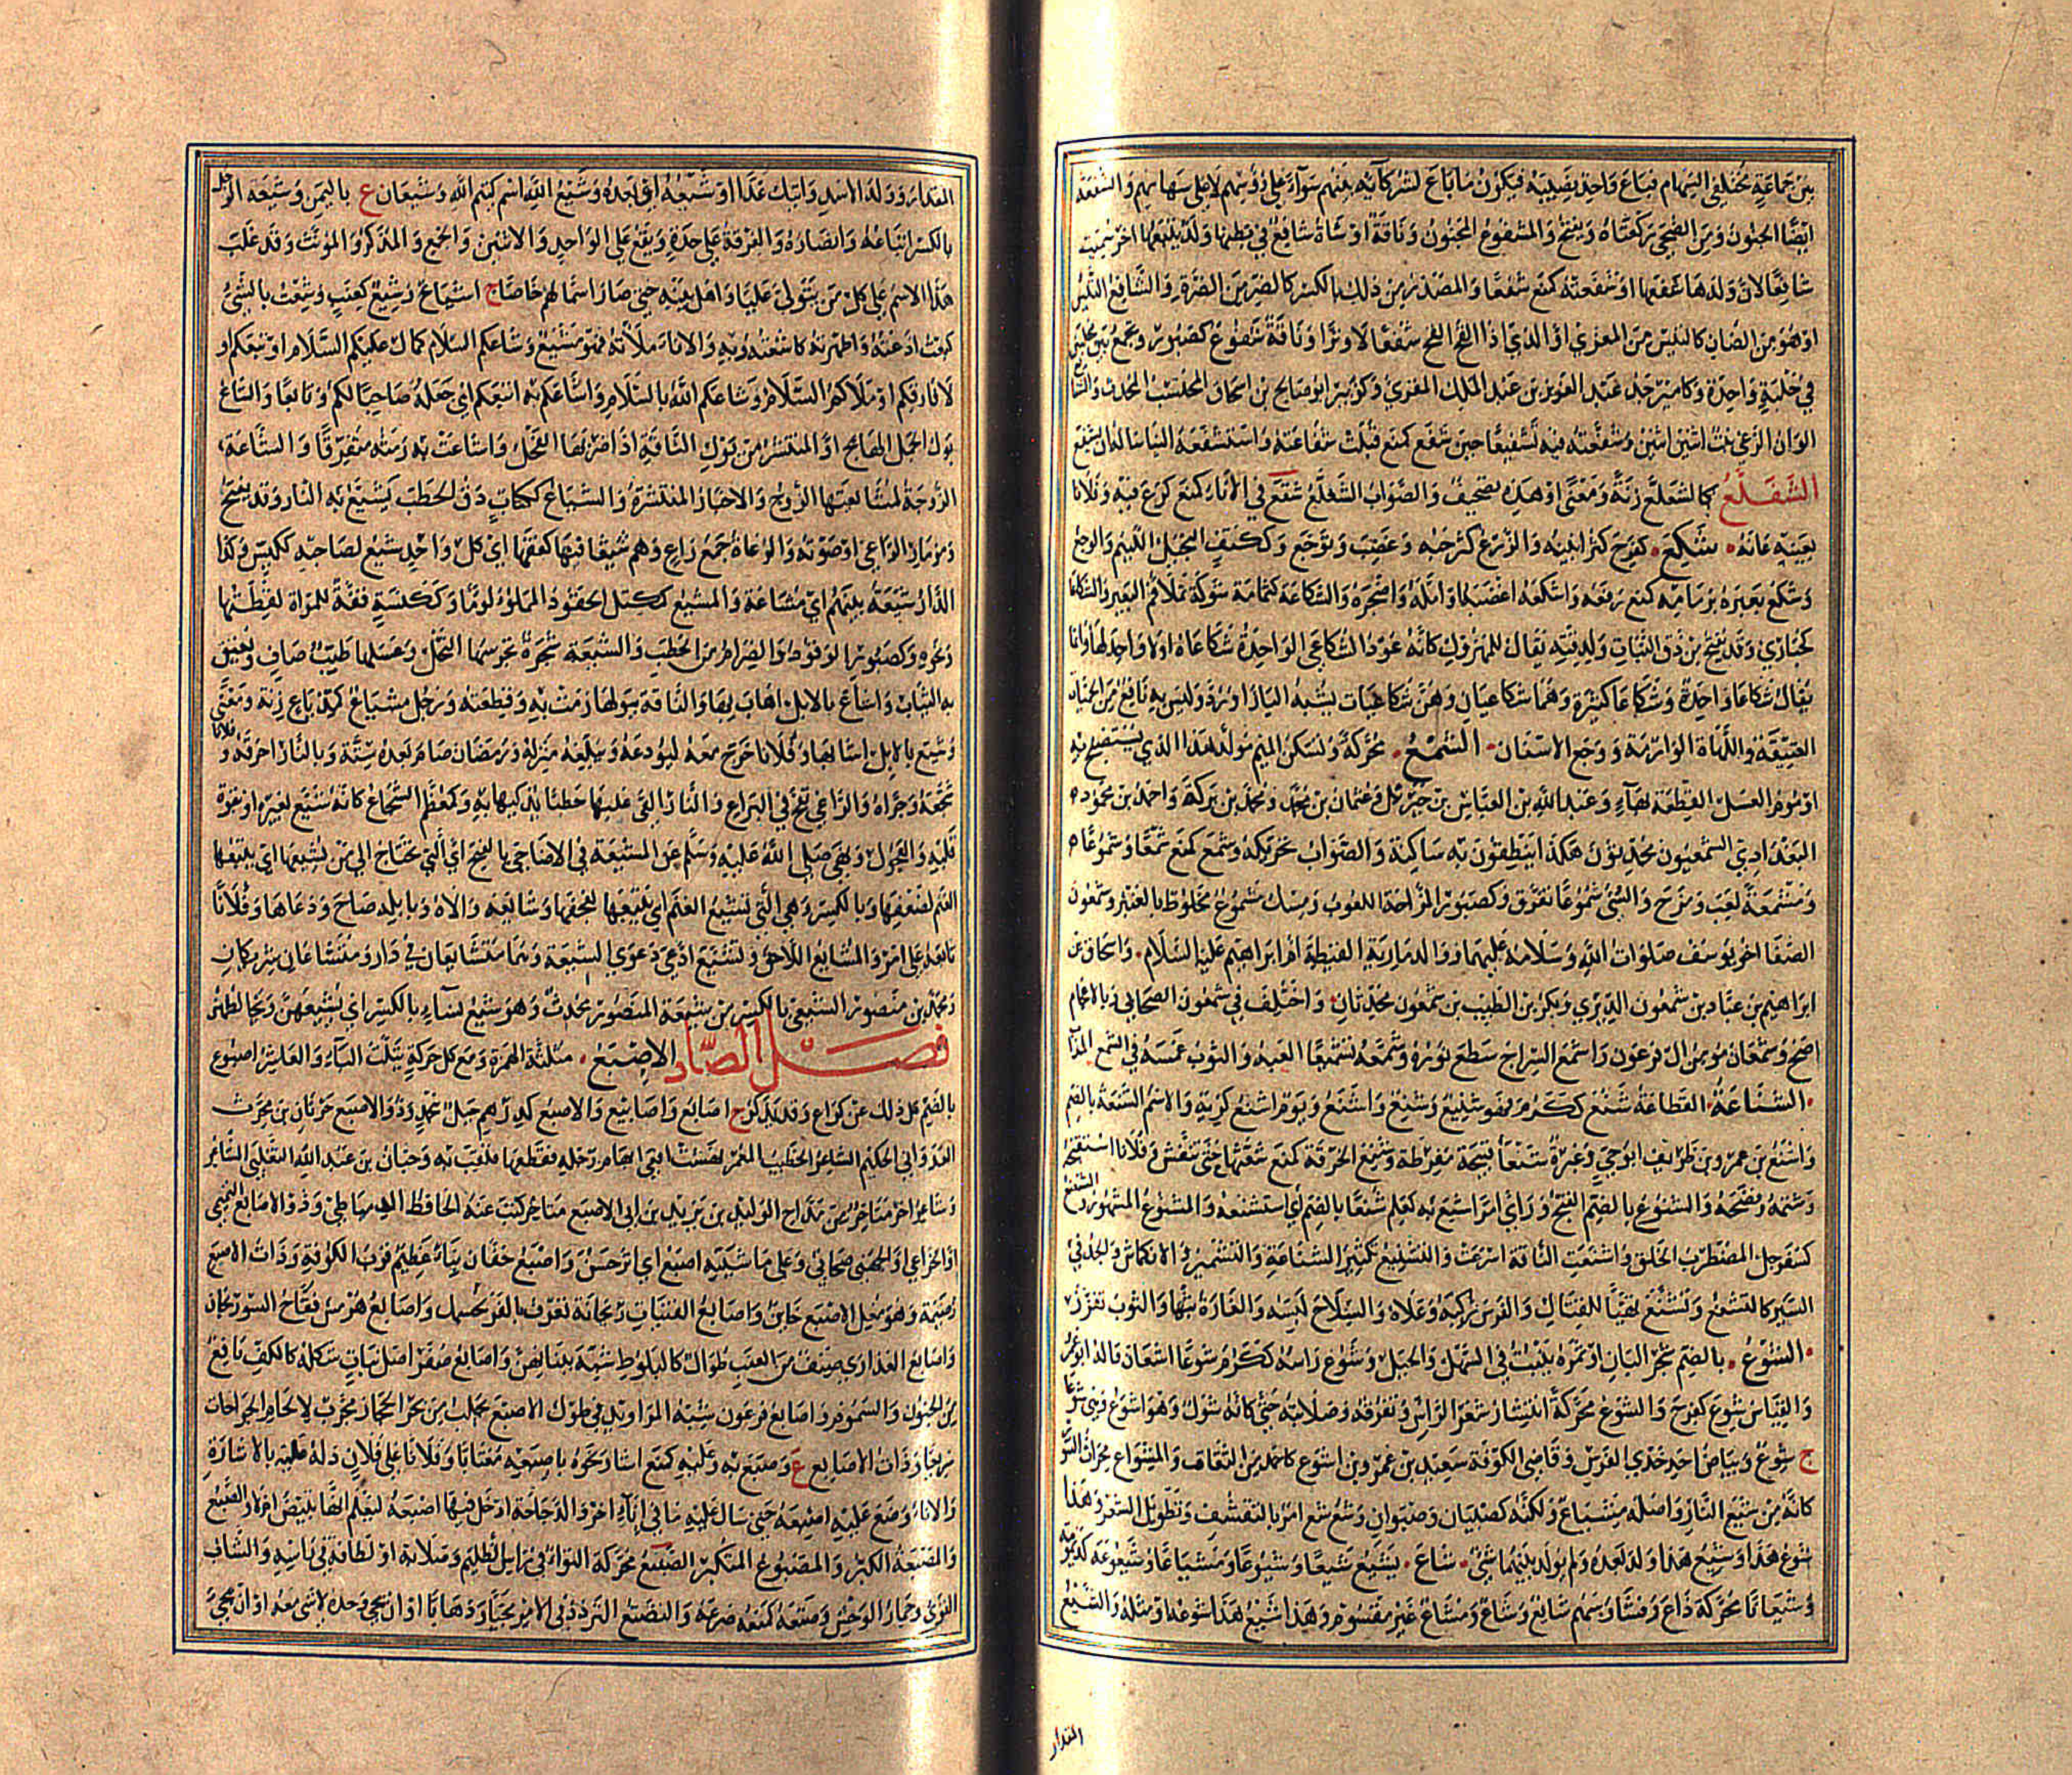 بين جماعة مختلفي السهام فيباع واحد نصيبه فيكون ما باع لشركائه بينهم سواء على رؤسهم لا على سهامهم والشفعة
ايضا الجنون ومن الضحى ركعتاه ويفتح والمشفوع المجنون وناقة او شاة شافع في بطنها ولد يتبعها اخر سميت
شافعا لان ولدها شفعها او شفعته كمنع شفعا والمصدر من ذلك بالكسر كالضر من الضرة والشافع التيس
او هو من الضان كالتيس من المعزي او الذي اذا القح القح شفعا لا وترا وناقة شفوع كصبور تجمع بين محلبين
في حلبة واحدة وكامير جد عبد العزيز بن عبد الملك المقري وكزبير ابو صالح بن اسحاق المحتسب المحدث والشا
الوان الرعي ينبت اثنين اثنين وشفعته فيه تشفيعا حين شفع كمنع قبلت شفاعته واستشفعه الينا ساله ان يشفع
الشفلع كالشعلع زنة ومعنى او هذه تصحيف والصواب الشعلع شقع في الاناء كمنع كرع فيه وفلانا
بعينه عانه شكع كفرح كثر انينه والزرع كثر حبه وغضب وتوجع وككتف البخيل اللئيم والوجع
وشكع بعيره بزمامه كمنع رفعه واشكعه اغضبه او امله واضجره والشكاعة كثمامة شوكة تملا فم البعير والشكاعا
كحبارى وقد يفتح من دق النبات ولدقته يقال للمهزول كانه عود الشكاعى الواحدة شكاعاة او لا واحد لها وانما
يقال شكاعا واحدة وشكاعا كثيرة وهما شكاعيان وهن شكاعيات يشبه الباذاورد وليس به نافع من الحميات
العتيقة واللهاة الوارمة ووجع الاسنان الشمع محركة وتسكن الميم مولد هذا الذي يستصبح به
او موم العسل القطعة بهاء وعبد الله بن العباس بن جبريل وعثمان بن محمد ومحمد بن بركة واحمد بن محمود
البغدادي الشمعيون محدثون هكذا ينطقون به ساكنة والصواب تحريكه وشمع كمنع شمعا وشموعا
ومشمعة لعب ومزح والشئ شموعا تفرق وكصبور المزاحة اللعوب ومسك مشموع مخلوط بالعنبر وشمعون
الصفا اخو يوسف صلوات الله وسلامه عليهما ووالد مارية القبطية ام ابراهيم عليه السلام واسحاق بن
ابراهيم بن عباد بن شمعون الدبري وبكر بن الطيب بن شمعون محدثان واختلف في شمعون الصحابي وبالاعجام
اصح وشمعان مومن ال فرعون واشمع السراج سطع نوره وشمعه تشميعا العبه والثوب غمسه في الشمع المذاب
الشناعة الفظاعة شنع ككرم فهو شنيع وشنع واشنع ويوم اشنع كريه والاسم الشنعة بالضم
واشنع بن عمرو بن طريف ابو حي وغيره شنعاء قبيحة مفرطة وشنع الخرقة كمنع شعثها حتى تنفش وفلانا استقبحه
وشتمه وفضحه والشنوع بالضم القبح وراى امرا شنع به كعلم شنعا بالضم اي استشنعه والمشنوع المشهور والشنعنع
كسفرجل المضطرب الخلق واشنعت الناقة اسرعت والتشنيع تكثير الشناعة والتشمير والانكماش والجد في
السير كالتشنع وتشنع تهيا للقتال والفرس ركبه وعلاه والسلاح لبسه والغارة بثها والثوب تفزر
الشوع بالضم شجر البان او ثمره ينبت في السهل والجبل وشوع راسه ككرم شوعا اشعان قاله ابو عمرو
والقياس شوع كفرح والشوع محركة انتشار شعر الراس وتفرقه وصلابته حتى كانه شوك وهو اشوع وهي شوعا
ج شوع وبياض احد خدي الفرس وقاضي الكوفة سعيد بن عمرو بن اشوع كاحمد من الثقات والمشواع محراث التنور
كانه من شيع النار واصله مشياع ولكنه كصبيان وصبوان وشع شع امر بالتقشف وتطويل الشعر وهذا
شوع هذا وشيع هذا ولد بعده ولم يولد بينهما شئ شاع يشيع شيعا وشيوعا ومشاعا وشيعوعة كديمومة
وشيعانا محركة ذاع وفشا وسهم شائع وشاع ومشاع غير مقسوم وهذا شيع هذا شوعه او مثله والشيع
المقدار
المقدار وولد الاسد واتيك غدا او شيعه اي بعده وشيع الله اسم كتيم الله وشيعان ع باليمن وشيعة الرجل
بالكسر اتباعه وانصاره والفرقة على حدة ويقع على الواحد والاثنين والجمع والمذكر والمؤنث وقد غلب
هذا الاسم على كل من يتولى عليا واهل بيته حتى صار اسما لهم خاصا ج اشياع وشيع كعنب وشعت بالشئ
كبعت اذعته واظهرته كاشعته وبه والاناء ملاته فهو مشيع وشاعكم السلام كمال عليكم السلام او تبعكم او
لا فارقكم او ملاكم السلام وشاعكم الله بالسلام واشاعكم به اتبعكم اي جعله صاحبا لكم وتابعا والشاع
بول الجمل الهائج او المنتشر من بول الناقة اذا ضربها الفحل واشاعت به رمته متفرقا والشاعة
الزوجة لمشايعتها الزوج والاخبار المنتشرة والشياع ككتاب دق الحطب يشيع به النار وقد يفتح
ومزمار الراعي او صوته والرعاة جمع راع وهم شيعاء فيها كفقهاء اي كل واحد شيع لصاحبه ككيس وكذا
الدار شيعة بينهم اي مشاعة والمشيع كمكيل الحقود المملوء لوما وككنسة قفة للمراة لقطنها
ونحوه وكصبور الوقود والضرام من الحطب والشيعة شجرة تجرسها النحل وعسلها طيب صاف ويعبق
به الثياب واشاع بالابل اهاب بها والناقة ببولها رمت به وقطعته ورجل مشياع كمذياع زنة ومعنى
وشيع بالابل اشاع بها وفلانا خرج معه ليودعه ويبلغه منزله ورمضان صام بعده ستة وبالنار احرقه وفلانا
شجعه وجراه والراعي نفخ في اليراع والنار القى عليها حطبا يذكيها به وكمعظم الشجاع كانه شيع بغيره او بقوة
قلبه والعجول ونهى صلى الله عليه وسلم عن المشيعة في الاضاحي بالفتح اي التي تحتاج الى من يشيعها اي يتبعها
الغنم لضعفها وبالكسر وهي التي تشيع الغنم اي يتبعها لعجفها وشايعه والاه وبابله صاح ودعاها وفلانا
تابعه على امر والمشايع اللاحق وتشيع ادعى دعوى الشيعة وهما متشايعان في دار ومشتاعان شريكان
ومحمد بن منصور الشيعي بالكسر من شيعة المنصور محدث وهو شيع نساء بالكسر اي يشيعهن ويخالطهن
فصل الصاد الاصبع مثلثة الهمزة ومع كل حركة يثلث الباء والعاشر اصبوع
بالضم كل ذلك عن كراع وقد يذكر ج اصابع واصابيع والاصبع كدرهم جبل بنجد وذو الاصبع حرثان بن محرث
العدواني الحكيم الشاعر الخطيب المعمر نهشت افعى ابهام رجله فقطعها فلقب به وحيان بن عبد الله التغلبي الشاعر
وشاعر اخر متاخر من مداح الوليد بن يزيد بن ابي الاصبع متاخر كتب عنه الحافظ الدمياطي وذو الاصابع التميمي
او الخزاعي او الجهني صحابي وعلى ماشيته اصبع اي اثر حسن واصبع خفان بناء عظيم قرب الكوفة وذات الاصبع
رضيمة وهو مغل الاصبع خائن واصابع الفتيات ريحانة تعرف بالفرنجمشك واصابع هرمس فقاح السورنجان
واصابع العذارى صنف من العنب طوال كالبلوط شبه ببنانهن واصابع صفر اصل نبات شكله كالكف نافع
من الجنون والسموم واصابع فرعون شبه المراويد في طول الاصبع يجلب من بحر الحجاز مجرب لالحام الجراحات
سريعا وذات الاصابع ع وصبع به وعليه كمنع اشار نحوه باصبعه مغتابا وفلانا على فلان دله عليه بالاشارة
والاناء وضع عليه اصبعه حتى سال عليه ما في اناء اخر والدجاجة ادخل فيها اصبعه ليعلم انها تبيض ام لا والصبع
والمصبعة الكبر والمصبوع المتكبر الصتع محركة التواء في راس الظليم وصلابة او لطافة في راسه والشاب
القوي وحمار الوحش وصتعه كمنعه صرعه والتصتع التردد في الامر مجيئا وذهابا او ان يجئ وحده لا شئ معه او ان يجئ